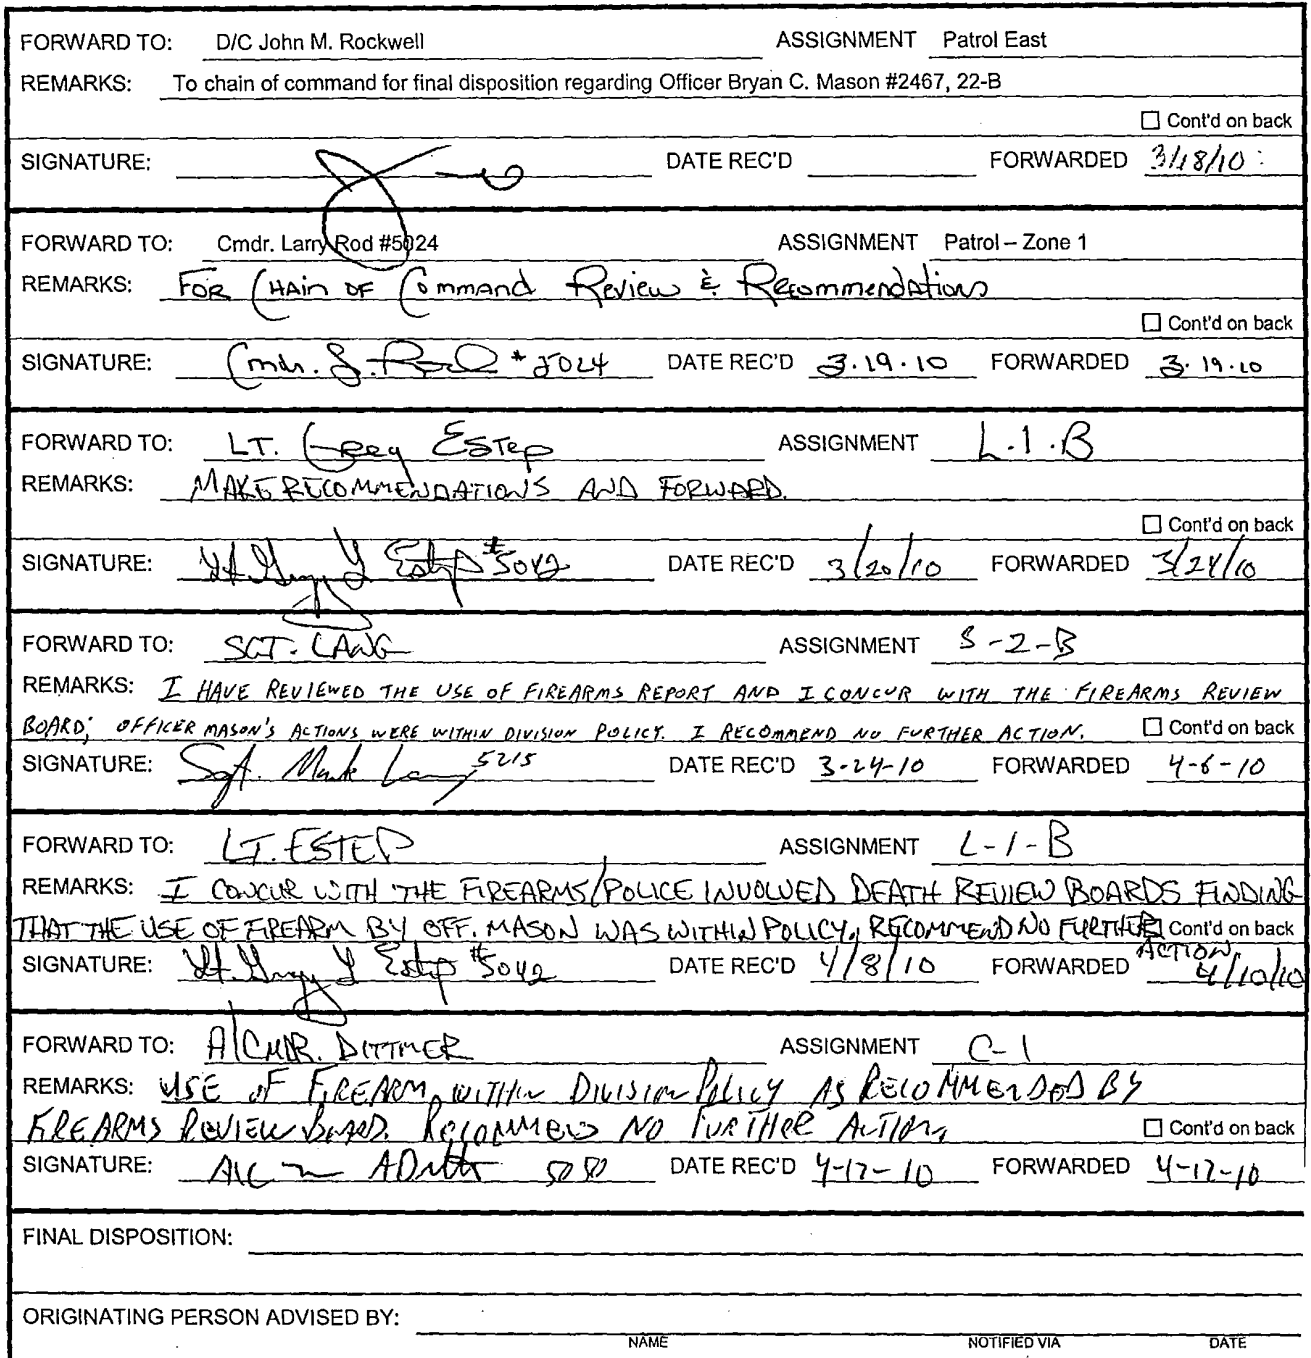 FORWARD TO: D/C John M. Rockwell ASSIGNMENT Patrol East
REMARKS: To chain of command for final disposition regarding Officer Bryan C. Mason #2467, 22-B
Cont'd on back
SIGNATURE: DATE REC'D FORWARDED 3/18/10
FORWARD TO: Cmdr. Larry Rod #5024 ASSIGNMENT Patrol – Zone 1
REMARKS: FOR CHAIN OF COMMAND Review & Recommendations
Cont'd on back
SIGNATURE: Cmdr. L. Rod #5024 DATE REC'D 3.19.10 FORWARDED 3.19.10
FORWARD TO: LT. Greg ESTep ASSIGNMENT L.1.B
REMARKS: MAKE RECOMMENDATIONS AND FORWARD.
Cont'd on back
SIGNATURE: Lt. Estep #5042 DATE REC'D 3/20/10 FORWARDED 3/24/10
FORWARD TO: SGT. LANG ASSIGNMENT S-2-B
REMARKS: I HAVE REVIEWED THE USE OF FIREARMS REPORT AND I CONCUR WITH THE FIREARMS REVIEW
BOARD; OFFICER MASON'S ACTIONS WERE WITHIN DIVISION POLICY. I RECOMMEND NO FURTHER ACTION. Cont'd on back
SIGNATURE: Sgt. Mark Lang 5215 DATE REC'D 3-24-10 FORWARDED 4-6-10
FORWARD TO: LT. ESTEP ASSIGNMENT L-1-B
REMARKS: I CONCUR WITH THE FIREARMS/POLICE INVOLVED DEATH REVIEW BOARDS FINDING
THAT THE USE OF FIREARM BY OFF. MASON WAS WITHIN POLICY, RECOMMEND NO FURTHER Cont'd on back
ACTION.
SIGNATURE: Lt. Estep #5042 DATE REC'D 4/8/10 FORWARDED 4/10/10
FORWARD TO: A/CMDR. DITTMER ASSIGNMENT C-1
REMARKS: USE OF FIREARM WITHIN DIVISION POLICY AS RECOMMENDED BY
FIREARMS REVIEW BOARD. RECOMMEND NO FURTHER ACTION. Cont'd on back
SIGNATURE: A/C 5050 DATE REC'D 4-12-10 FORWARDED 4-12-10
FINAL DISPOSITION:
ORIGINATING PERSON ADVISED BY:
NAME NOTIFIED VIA DATE